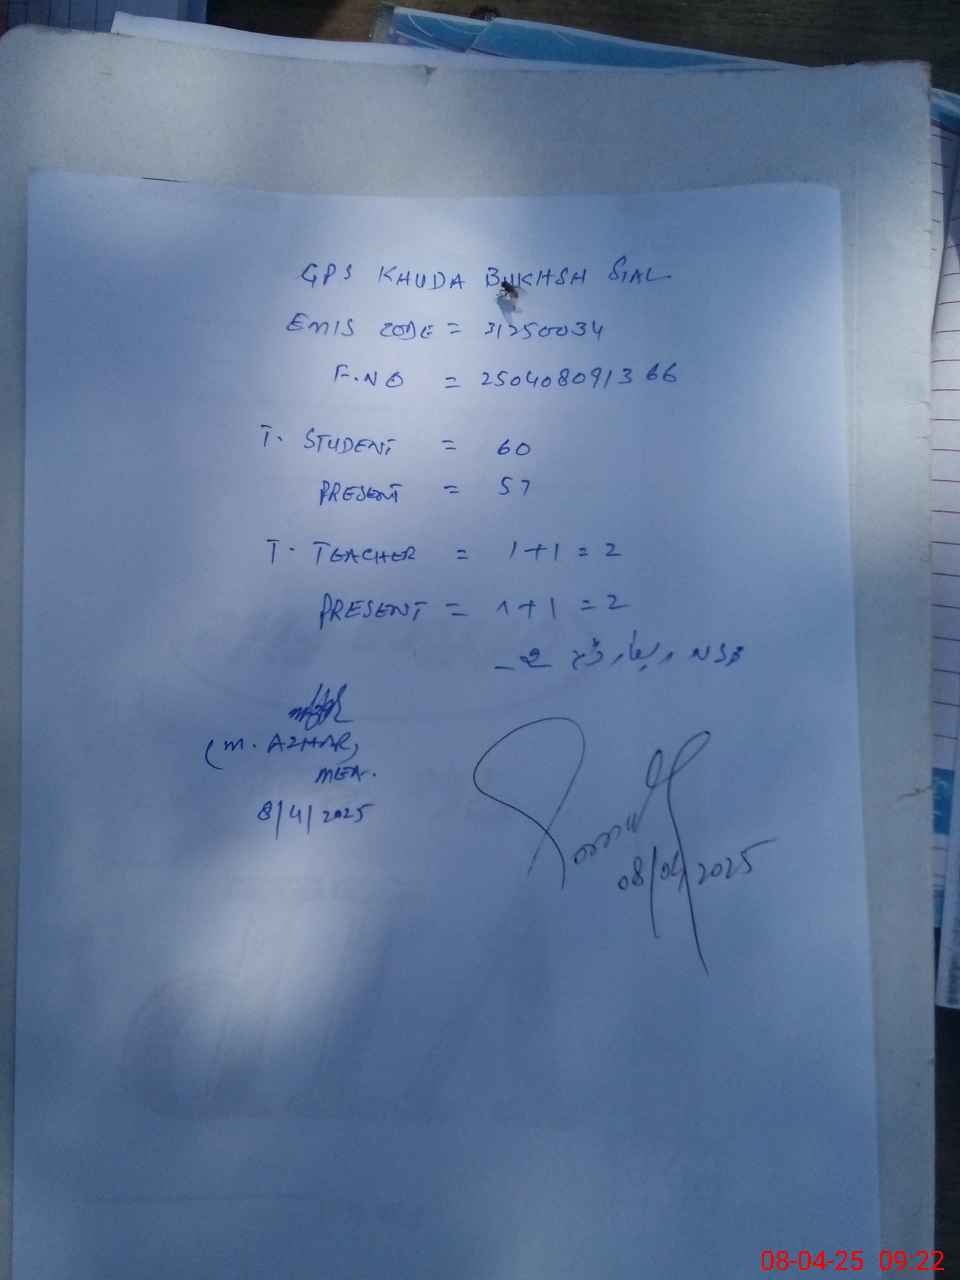 GPS KHUDA BUKHSH SIAL
EMIS CODE = 31250034
F.NO = 250408091366
T. STUDENT = 60
PRESENT = 57
T. TEACHER = 1+1=2
PRESENT = 1+1=2
NSB ریکارڈ
(M. AZHAR)
MEA.
8/4/2025
08/04/2025
08-04-25 09:22